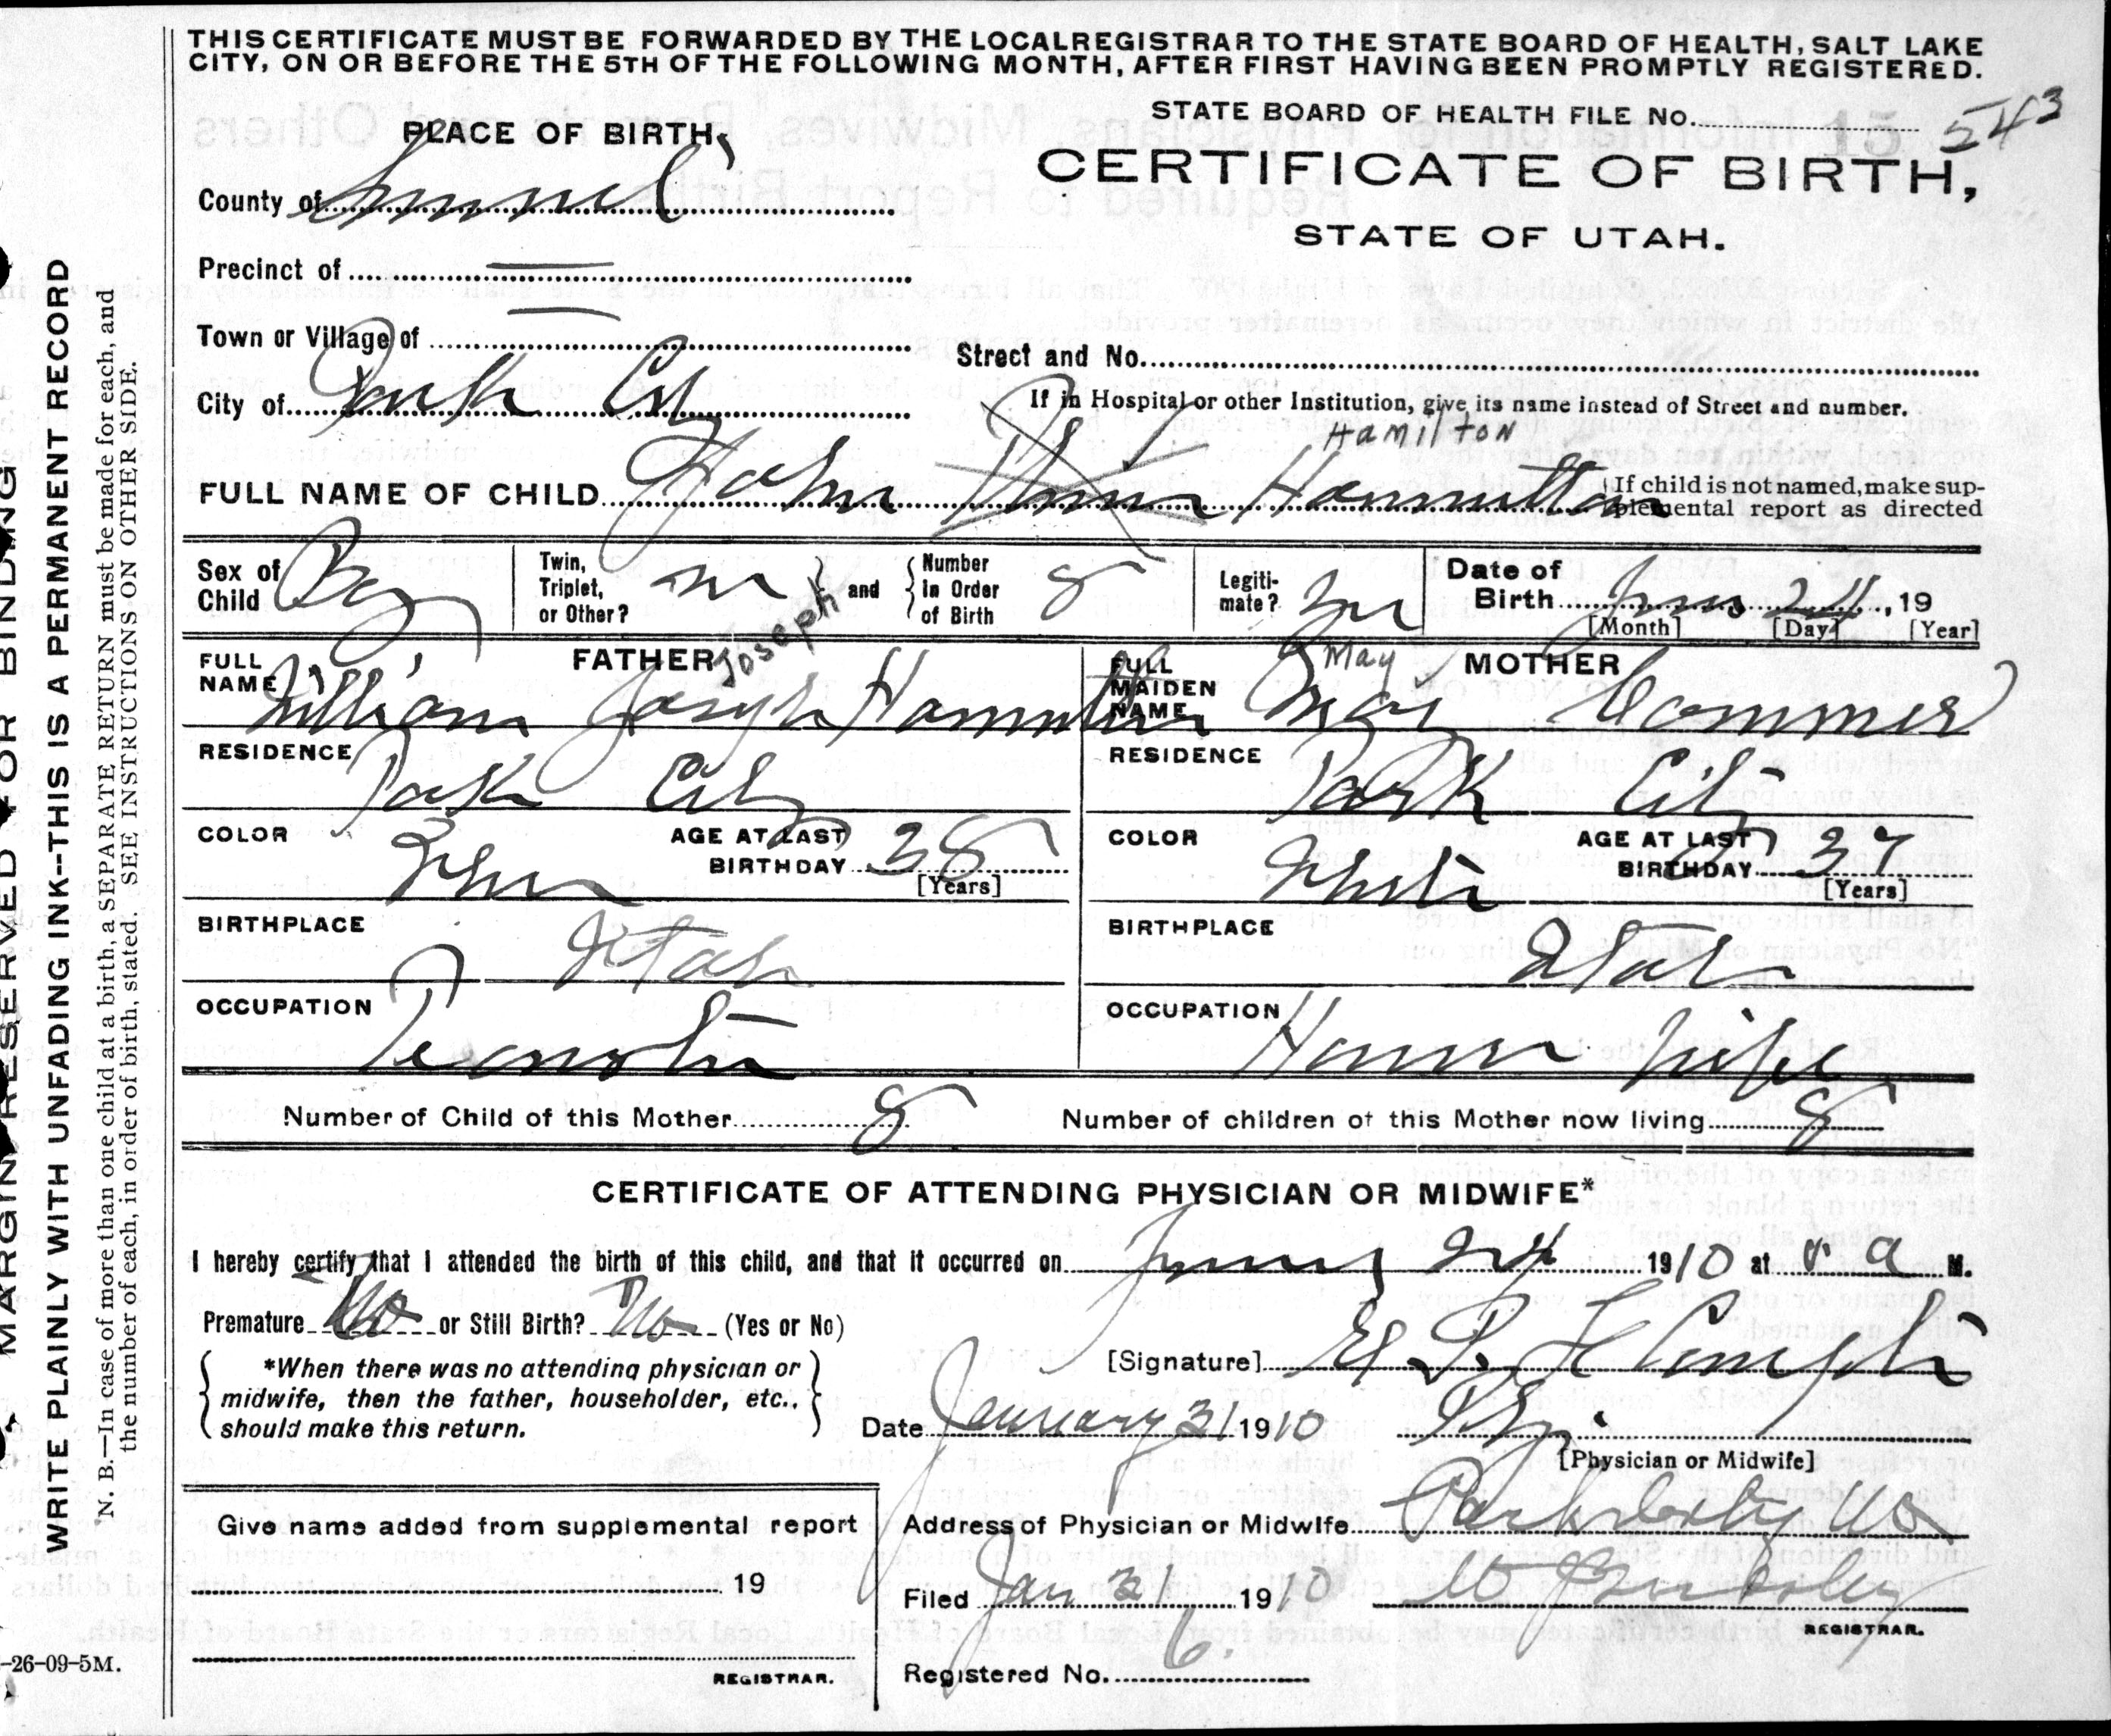 THIS CERTIFICATE MUST BE FORWARDED BY THE LOCAL REGISTRAR TO THE STATE BOARD OF HEALTH, SALT LAKE
CITY, ON OR BEFORE THE 5TH OF THE FOLLOWING MONTH, AFTER FIRST HAVING BEEN PROMPTLY REGISTERED.
STATE BOARD OF HEALTH FILE NO. 543
15
CERTIFICATE OF BIRTH,
STATE OF UTAH.
PLACE OF BIRTH,
County of Summit
Precinct of —
Town or Village of —
City of Park City
Street and No.
If in Hospital or other Institution, give its name instead of Street and number.
Hamilton
FULL NAME OF CHILD John Hamilton
If child is not named, make sup-
plemental report as directed
Sex of Child Boy
Twin, Triplet, or Other?
and
Number in Order of Birth 8
Legiti-mate?
Date of Birth 24, 19
[Month] [Day] [Year]
FATHER
Joseph
FULL NAME William Joseph Hamilton
RESIDENCE Park City
COLOR
AGE AT LAST BIRTHDAY 38
[Years]
BIRTHPLACE Utah
OCCUPATION Teamster
MOTHER
May
FULL MAIDEN NAME May Commer
RESIDENCE Park City
COLOR White
AGE AT LAST BIRTHDAY 37
[Years]
BIRTHPLACE Utah
OCCUPATION House Wife
Number of Child of this Mother 8
Number of children of this Mother now living 8
CERTIFICATE OF ATTENDING PHYSICIAN OR MIDWIFE*
I hereby certify that I attended the birth of this child, and that it occurred on 24 1910 at a M.
Premature No or Still Birth? No (Yes or No)
*When there was no attending physician or
midwife, then the father, householder, etc.,
should make this return.
[Signature] E P Le Compte
Date January 31 1910
Phy.
[Physician or Midwife]
Address of Physician or Midwife Park City
Filed Jan 31 1910
REGISTRAR.
Registered No. 6.
Give name added from supplemental report
19
REGISTRAR.
MARGIN RESERVED FOR BINDING
WRITE PLAINLY WITH UNFADING INK--THIS IS A PERMANENT RECORD
N. B.—In case of more than one child at a birth, a SEPARATE RETURN must be made for each, and
the number of each, in order of birth, stated. SEE INSTRUCTIONS ON OTHER SIDE.
-26-09-5M.